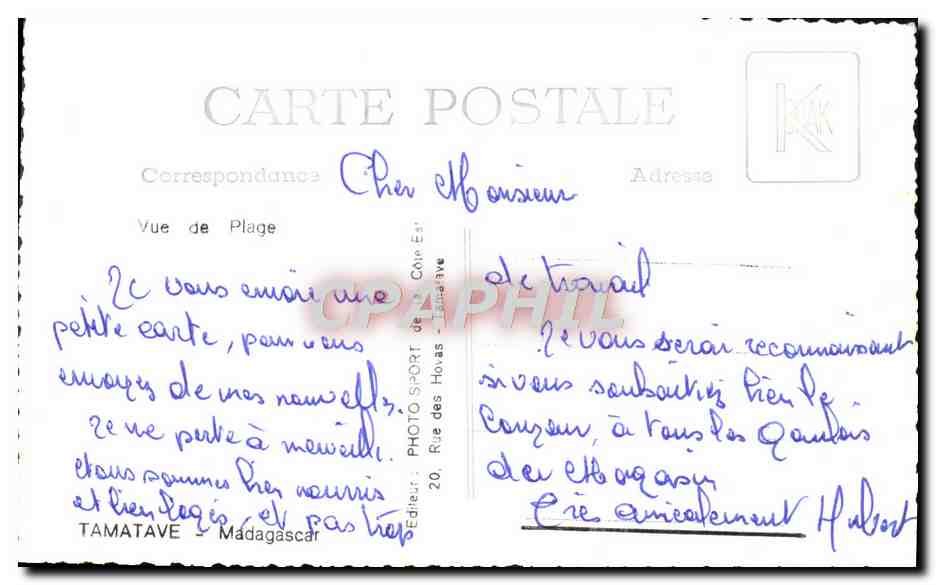 CARTE POSTALE
KODAK
Correspondance
Adresse
Cher Monsieur
Vue de Plage
Je vous envoie une
petite carte, pour vous
envoyez de mes nouvelles.
Je me porte à merveille.
Nous sommes bien nourris
et bien logés, et pas trop
de travail
Je vous serai reconnaissant
si vous souhaitiez bien le
bonjour, à tous les Gaulois
du Magasin
Très amicalement Hubert
Editeur: PHOTO SPORT de la Côte Est
20, Rue des Hovas - Tamatave
TAMATAVE - Madagascar
CPAPHIL